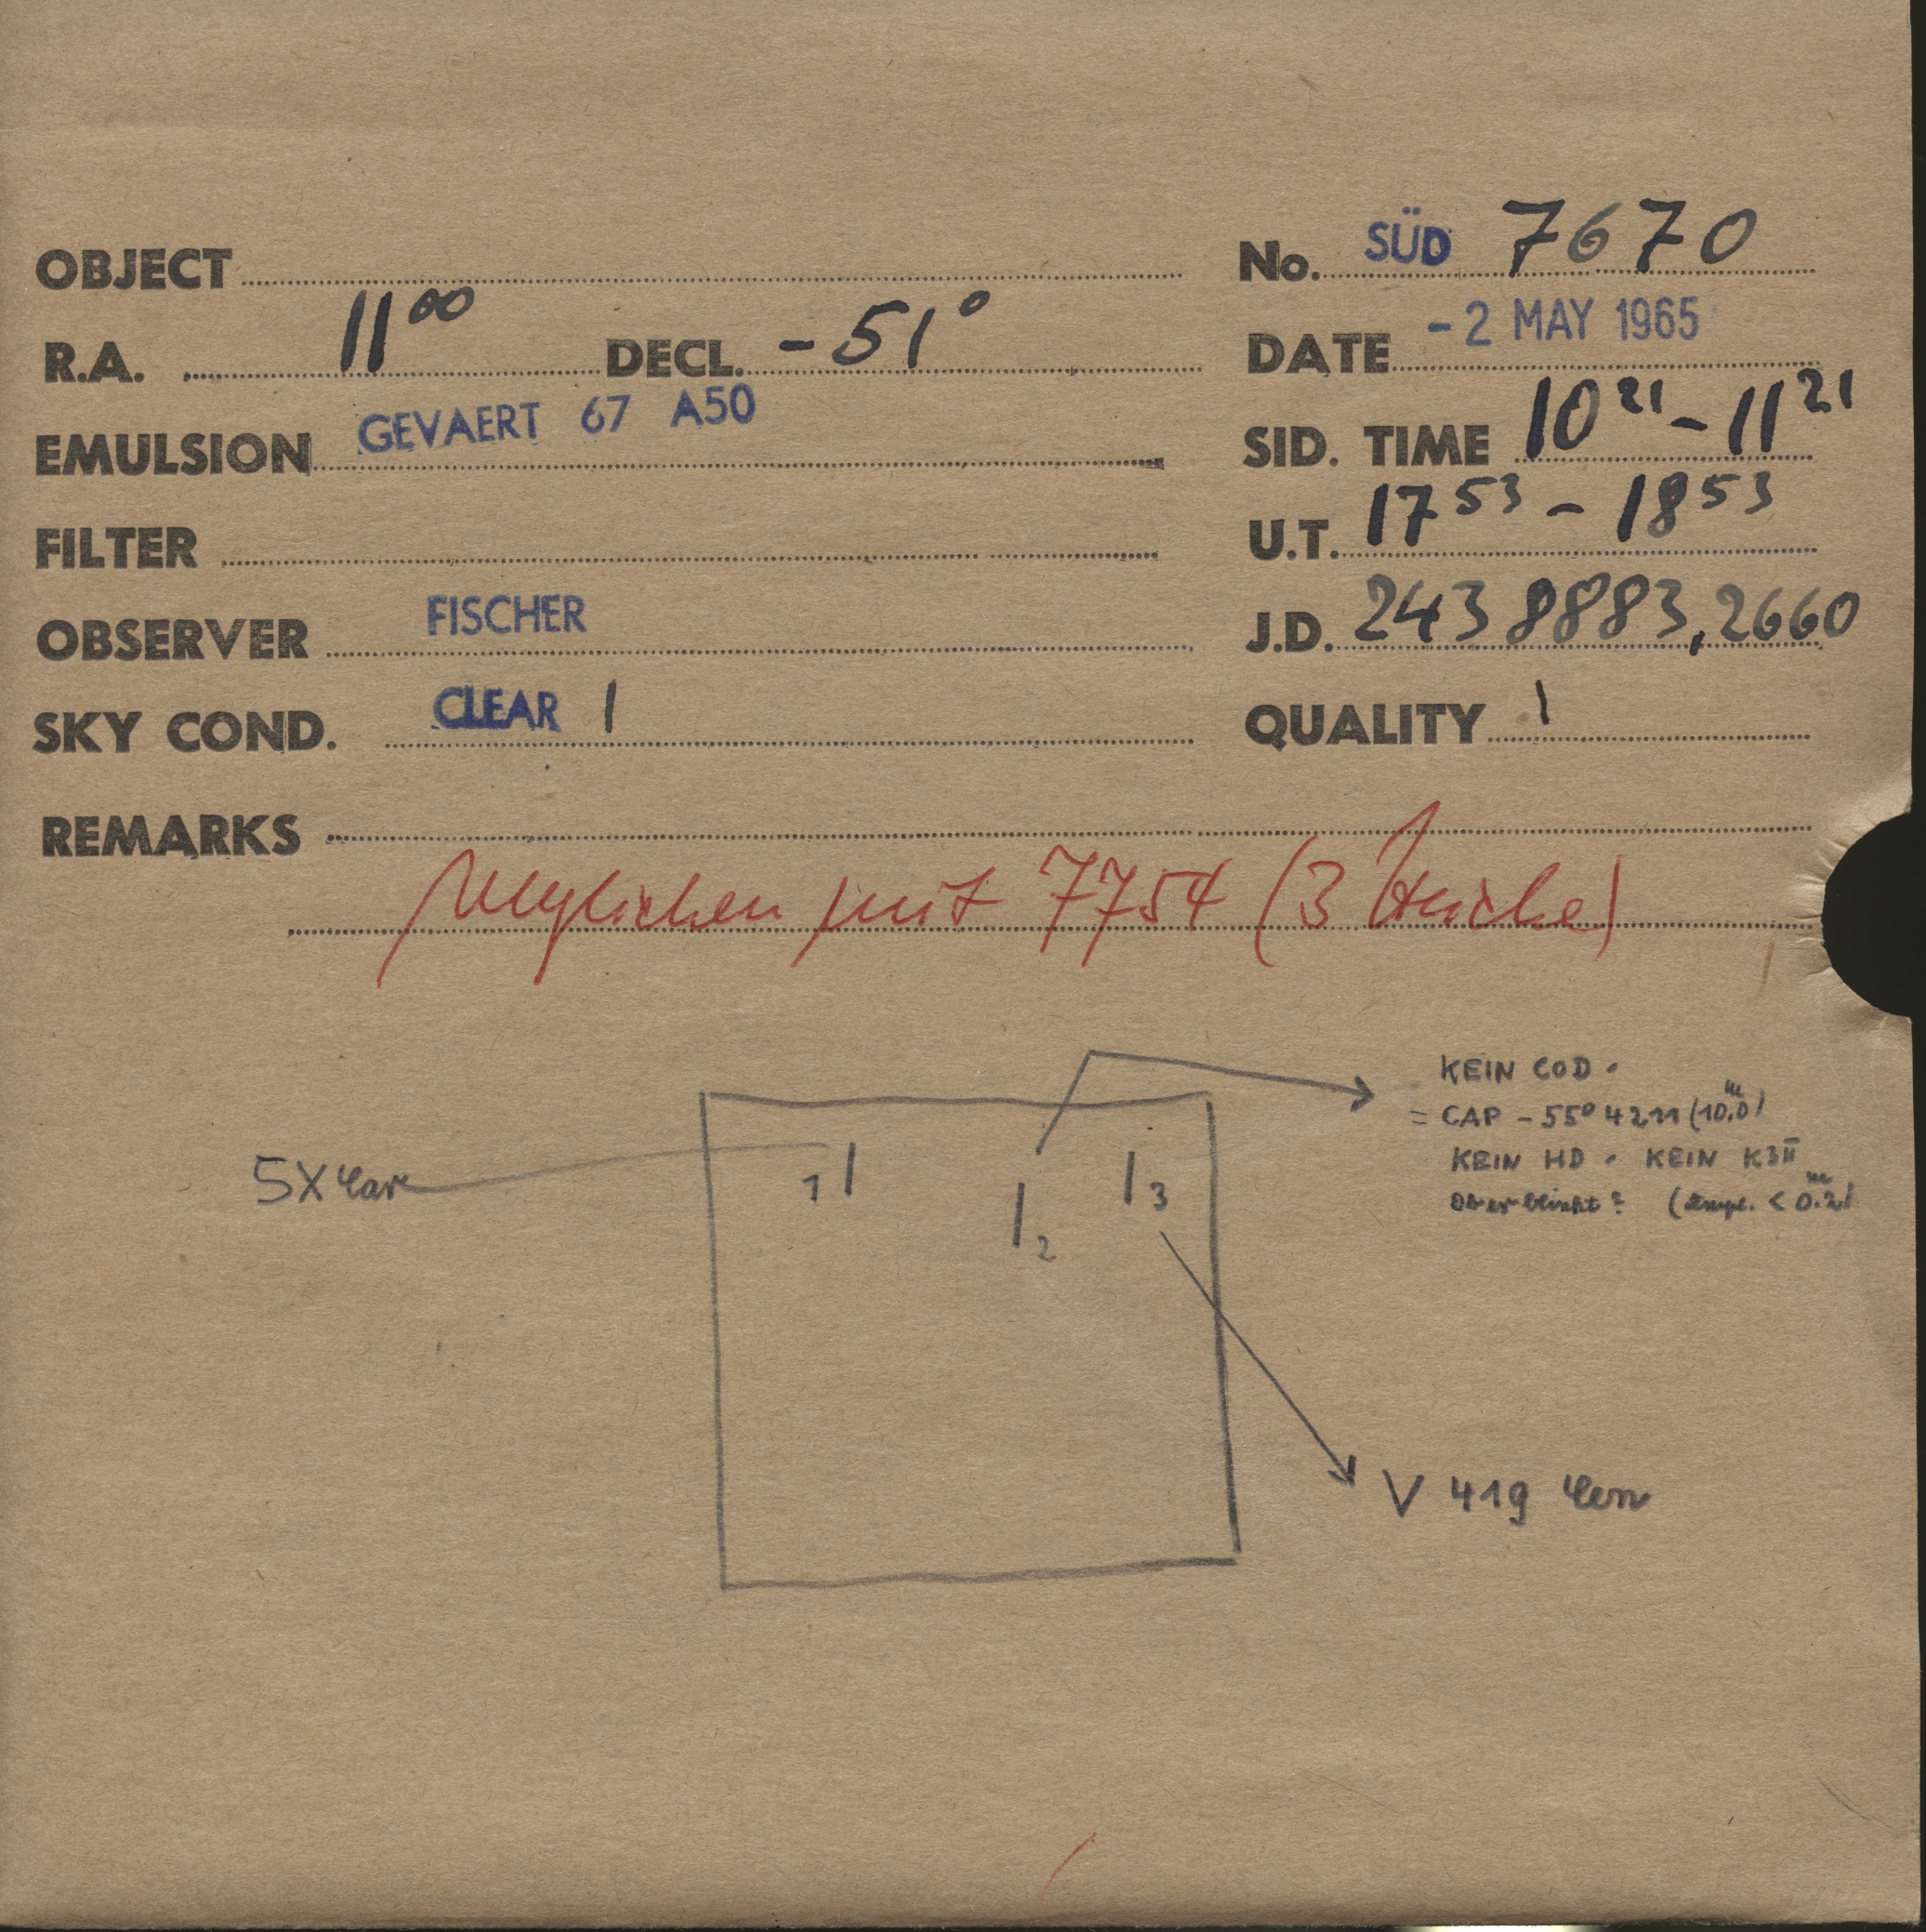 OBJECT
No. SÜD 7670
R.A. 11 00 DECL. -51°
DATE -2 MAY 1965
EMULSION GEVAERT 67 A50
SID. TIME 10 21 - 11 21
FILTER
U.T. 17 53 - 18 53
OBSERVER FISCHER
J.D. 2438883,2660
SKY COND. CLEAR 1
QUALITY 1
REMARKS
verglichen mit 7754 (3 Striche)
KEIN COD.
= CAP -55° 4211 (10,0 m)
KEIN HD. KEIN K3II
Ob er blinkt? (Ampl. < 0.2 m)
SX Car
1
2
3
V 419 Cen